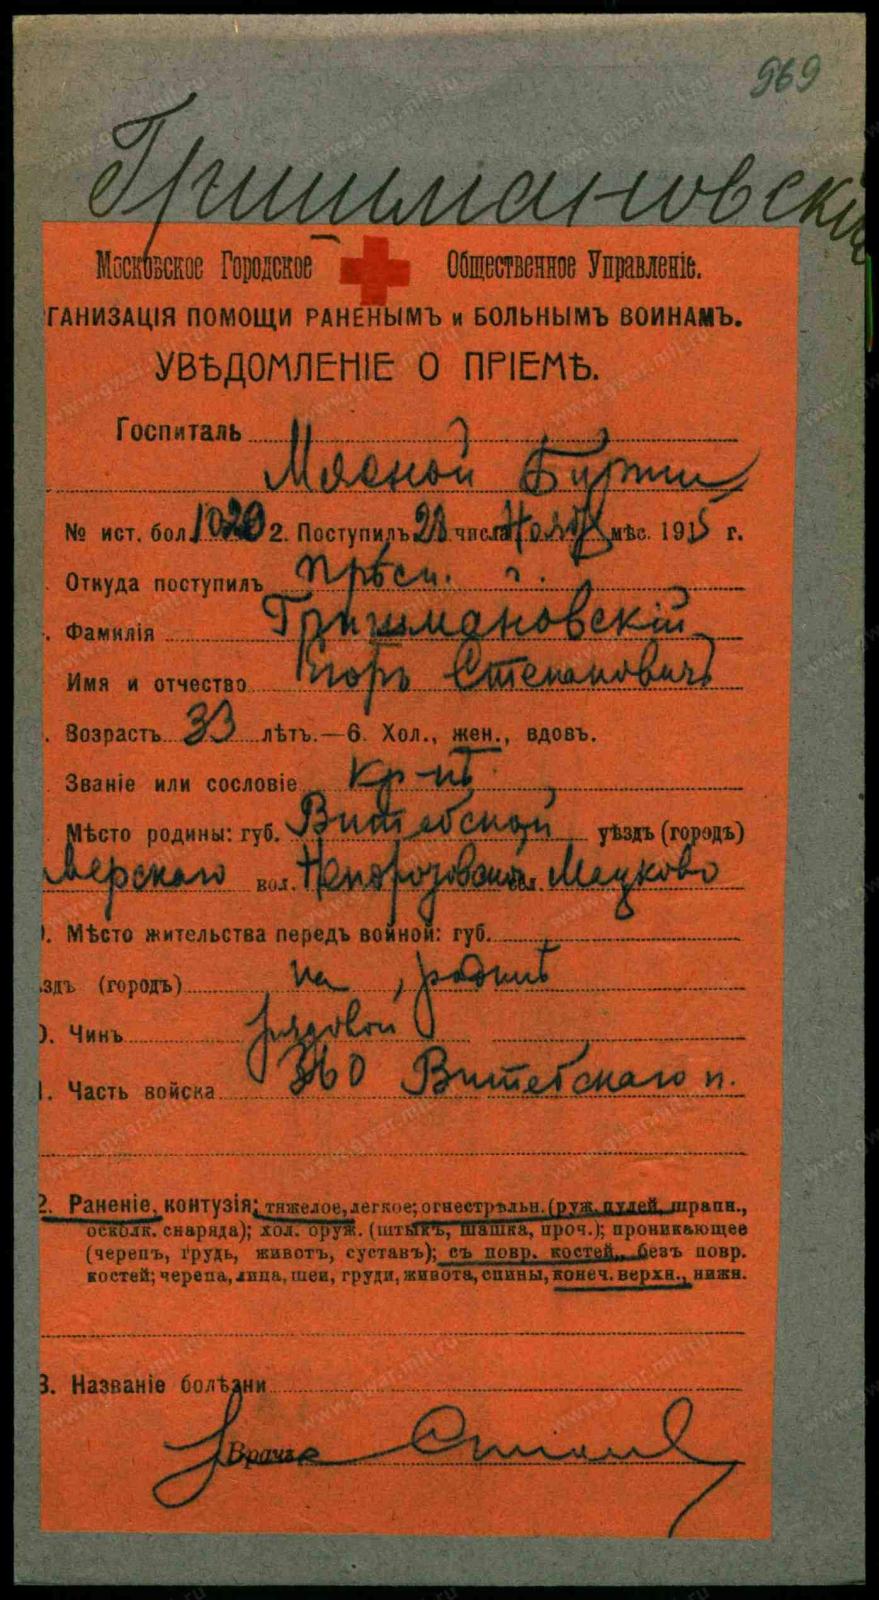 969
Гришмановскій
Московское Городское Общественное Управленіе.
РГАНИЗАЦІЯ ПОМОЩИ РАНЕНЫМЪ и БОЛЬНЫМЪ ВОИНАМЪ.
УВѢДОМЛЕНІЕ О ПРІЕМѢ.
Госпиталь
Мясной Биржи
№ ист. бол. 10202. Поступилъ 28 числа Нояб мѣс. 1915 г.
Откуда поступилъ Прѣсн. г.
Фамилія Гришмановскій
Имя и отчество Егоръ Степановичъ
Возрастъ 33 лѣтъ.—6. Хол., жен., вдовъ.
Званіе или сословіе кр-нъ
Мѣсто родины: губ. Витебской уѣздъ (городъ)
верскаго вол. Непорозовской сел. Мацково
Мѣсто жительства передъ войной: губ.
здъ (городъ) на родинѣ
0. Чинъ рядовой
1. Часть войска 360 Витебскаго п.
2. Раненіе, контузія: тяжелое, легкое; огнестрѣльн. (руж. пулей, шрапн.,
осколк. снаряда); хол. оруж. (штыкъ, шашка, проч.); проникающее
(черепъ, грудь, животъ, суставъ); съ повр. костей, безъ повр.
костей; черепа, лица, шеи, груди, живота, спины, конеч. верхн., нижн.
3. Названіе болѣзни
Врачъ